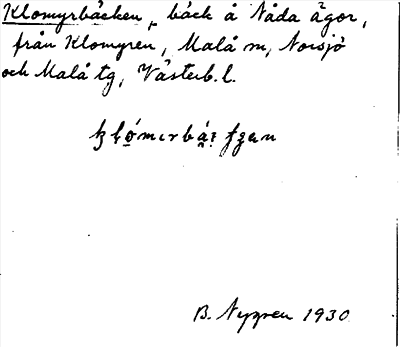 Klomyrbäcken, bäck å Nåda ägor,
från Klomyren, Malå m, Norsjö
och Malå tg, Västerb. l.
B. Nygren 1930